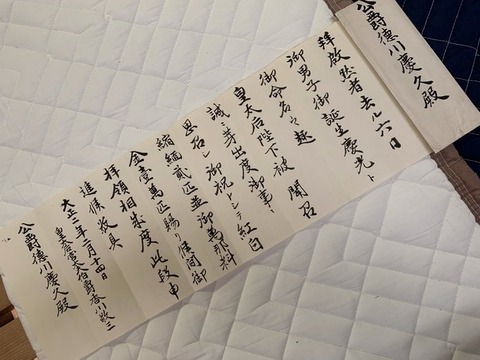 公爵德川慶久殿
拝啓陳者去ル六日
御男子御誕生慶光ト
御命名之趣
皇太后陛下被聞召
誠ニ芽出度御事ニ
思召シ御祝トシテ紅白
縮緬貳匹並御萬那料
金壹萬匹賜り候間御
拝領相成度此段申
進候敬具
大正二年二月十四日
皇太后宮大夫伯爵香川敬三
公爵德川慶久殿